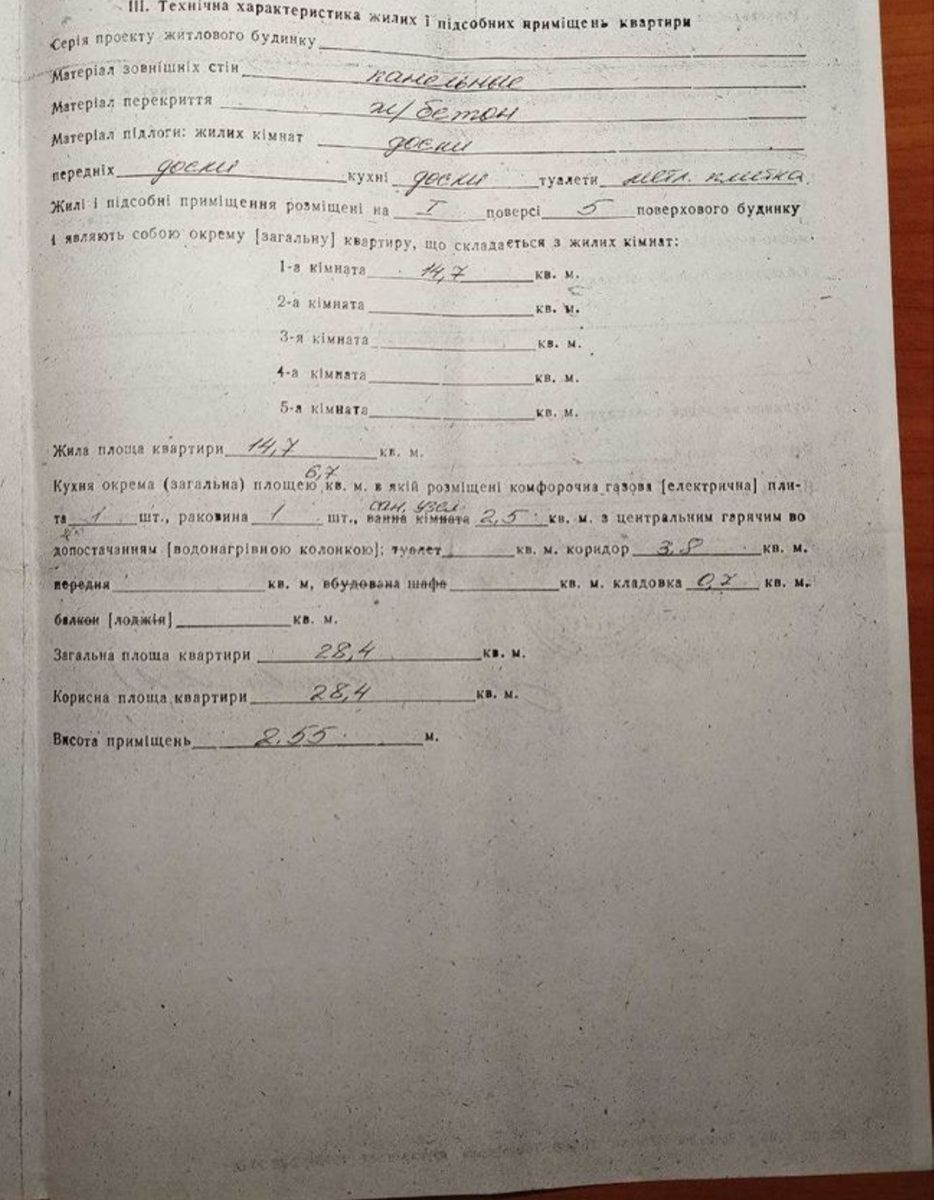 III. Технічна характеристика жилих і підсобних приміщень квартири
Серія проекту житлового будинку
Матеріал зовнішніх стін панельные
Матеріал перекриття ж/бетон
Матеріал підлоги: жилих кімнат доски
передніх доски кухні доски туалети метл. плитка
Жилі і підсобні приміщення розміщені на I поверсі 5 поверхового будинку
і являють собою окрему [загальну] квартиру, що складається з жилих кімнат:
1-а кімната 14,7 кв. м.
2-а кімната кв. м.
3-я кімната кв. м.
4-а кімната кв. м.
5-а кімната кв. м.
Жила площа квартири 14,7 кв. м.
6,7
Кухня окрема (загальна) площею кв. м. в якій розміщені комфорочна газова [електрична] пли-
сан. узел
та 1 шт., раковина 1 шт., ванна кімната 2,5 кв. м. з центральним гарячим во
допостачанням [водонагрівною колонкою]; туалет кв. м. коридор 3,8 кв. м.
передня кв. м, вбудована шафа кв. м. кладовка 0,7 кв. м.
балкон [лоджія] кв. м.
Загальна площа квартири 28,4 кв. м.
Корисна площа квартири 28,4 кв. м.
Висота приміщень 2.55 м.